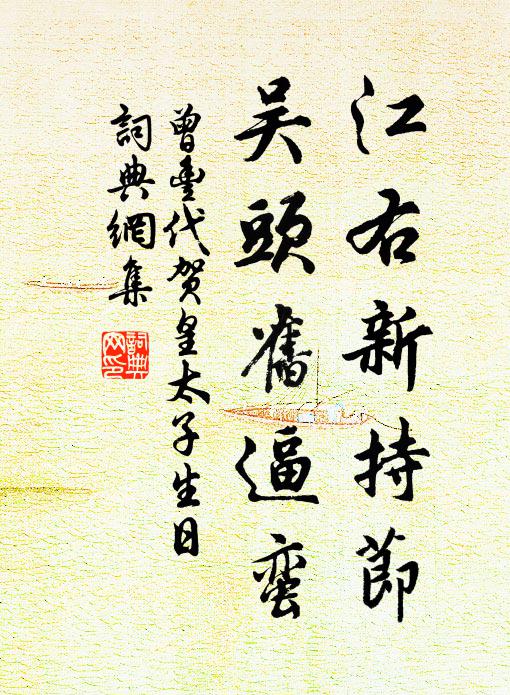 江右新持節
吴頭舊逼蠻
曾豐代賀皇太子生日
詞典網集
詞典网印